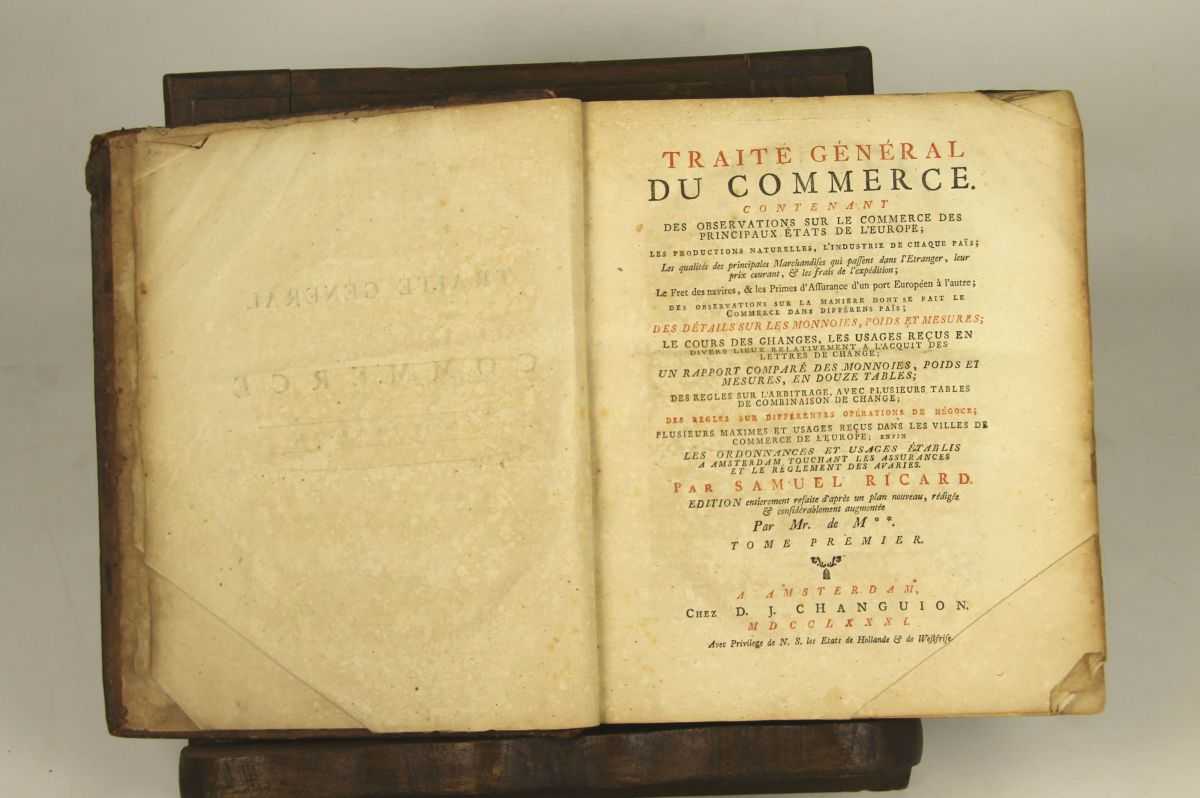 TRAITÉ GÉNÉRAL
DU COMMERCE.
CONTENANT
DES OBSERVATIONS SUR LE COMMERCE DES
PRINCIPAUX ÉTATS DE L'EUROPE;
LES PRODUCTIONS NATURELLES, L'INDUSTRIE DE CHAQUE PAÏS;
Les qualités des principales Marchandises qui passent dans l'Etranger, leur
prix courant, & les frais de l'expédition;
Le Fret des navires, & les Primes d'Assurance d'un port Européen à l'autre;
DES OBSERVATIONS SUR LA MANIERE DONT SE FAIT LE
COMMERCE DANS DIFFÉRENS PAÏS;
DES DÉTAILS SUR LES MONNOIES, POIDS ET MESURES;
LE COURS DES CHANGES, LES USAGES REÇUS EN
DIVERS LIEUX RELATIVEMENT A L'ACQUIT DES
LETTRES DE CHANGE;
UN RAPPORT COMPARÉ DES MONNOIES, POIDS ET
MESURES, EN DOUZE TABLES;
DES REGLES SUR L'ARBITRAGE, AVEC PLUSIEURS TABLES
DE COMBINAISON DE CHANGE;
DES REGLES SUR DIFFÉRENTES OPÉRATIONS DE NÉGOCE;
PLUSIEURS MAXIMES ET USAGES REÇUS DANS LES VILLES DE
COMMERCE DE L'EUROPE; ENFIN
LES ORDONNANCES ET USAGES ÉTABLIS
A AMSTERDAM TOUCHANT LES ASSURANCES
ET LE REGLEMENT DES AVARIES.
PAR SAMUEL RICARD.
EDITION entierement refaite d'après un plan nouveau, rédigée
& considérablement augmentée
Par Mr. de M**.
TOME PREMIER.
A AMSTERDAM,
CHEZ D. J. CHANGUION.
MDCCLXXXI.
Avec Privilege de N. S. les Etats de Hollande & de Westfrise